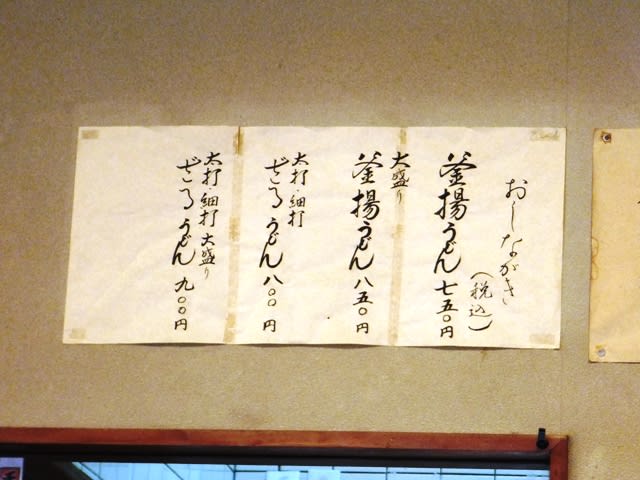 おしながき
(税込)
釜揚うどん 七五〇円
大盛り
釜揚うどん 八五〇円
太打・細打
ざるうどん 八〇〇円
太打・細打 大盛り
ざるうどん 九〇〇円